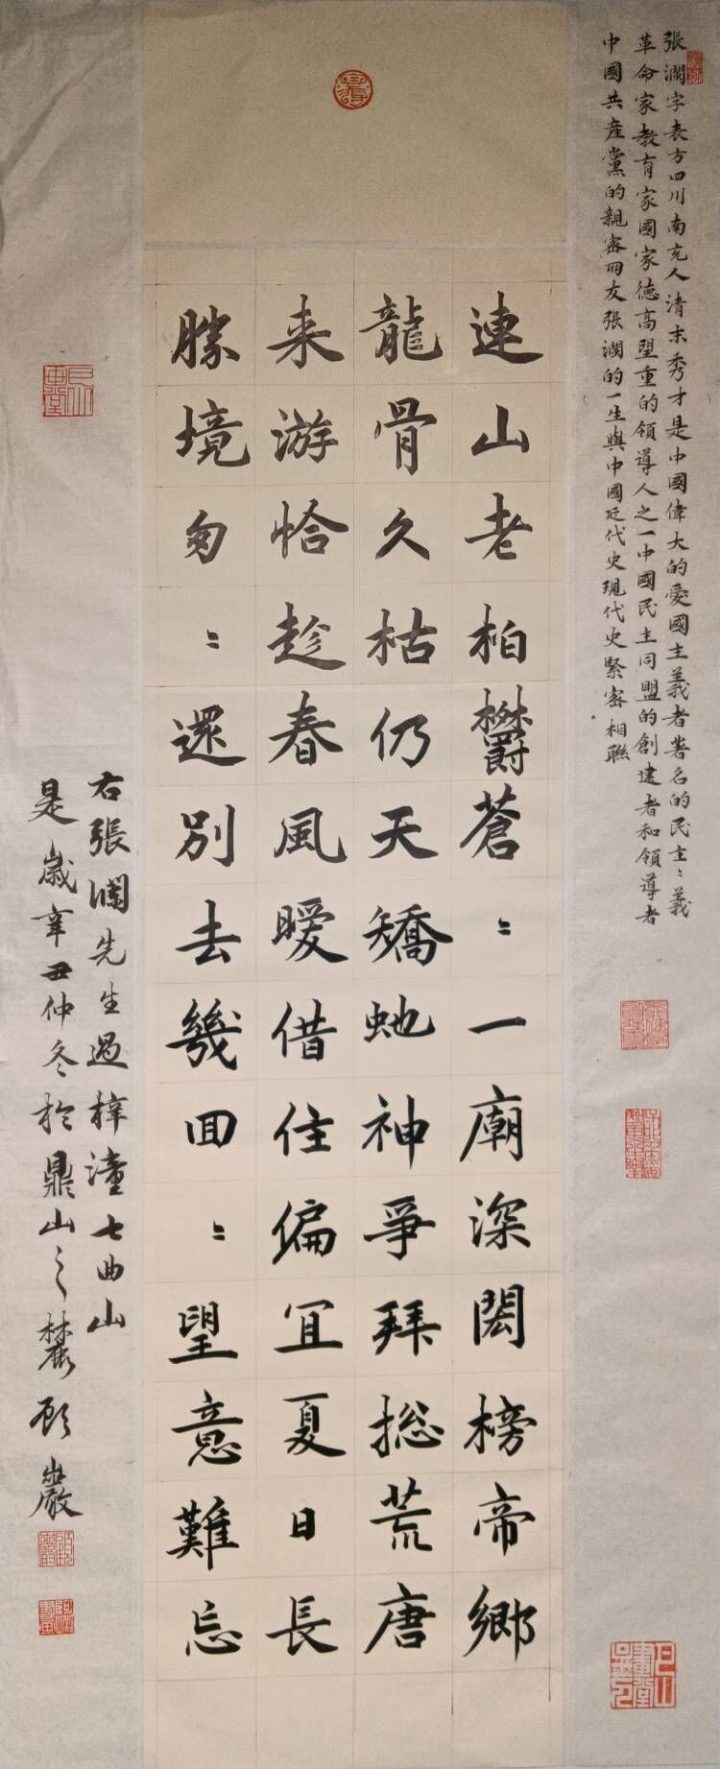 張瀾字表方四川南充人清末秀才是中國偉大的愛國主義者著名的民主〻義
革命家教育家國家德高望重的領導人之一中國民主同盟的創建者和領導者
中國共產黨的親密朋友張瀾的一生與中國近代史現代史緊密相聯
連山老柏欝蒼〻一廟深閎榜帝鄉
龍骨久枯仍天矯虵神爭拜総荒唐
来游恰趁春風暖借住偏宜夏日長
勝境匆〻還別去幾回〻望意難忘
右張瀾先生過梓潼七曲山
是歲辛丑仲冬於鼎山之麓 巖